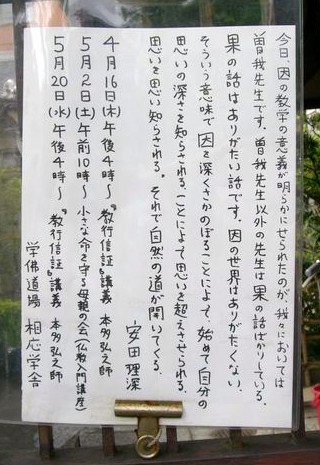 今日、因の教学の意義が明らかにせられたのが、我々においては
曽我先生です。曽我先生以外の先生は果の話ばかりしている。
果の話はありがたい話です。因の世界はありがたくない。
そういう意味で因を深くさかのぼることによって、始めて自分の
思いの深さを知らされる。ことによって思いを超えさせられる。
思いを思い知らされる。それで自然の道が開いてくる。
安田理深
4月16日(木)午後4時〜 “教行信証”講義 本多弘之師
5月2日(土)午前10時〜 小さな命を守る母親の会(仏教入門講座)
5月20日(水)午後4時〜 “教行信証”講義 本多弘之師
学佛道場 相応学舎